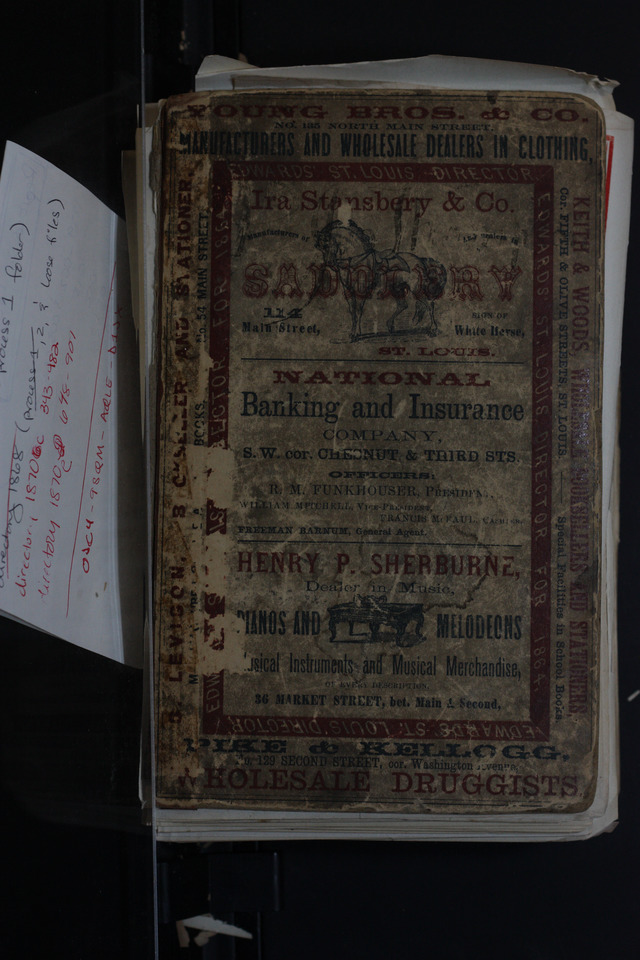 YOUNG BROS. & CO.
No. 135 NORTH MAIN STREET,
MANUFACTURERS AND WHOLESALE DEALERS IN CLOTHING,
EDWARDS' ST. LOUIS DIRECTOR
Ira Stansbery & Co.
Manufacturers of
SADDLERY
114
Main Street,
SIGN OF
White Horse,
ST. LOUIS.
NATIONAL
Banking and Insurance
COMPANY,
S. W. cor. CHESNUT & THIRD STS.
OFFICERS:
R. M. FUNKHOUSER, President,
WILLIAM MITCHELL, Vice-President,
FRANCIS M. PAUL, Cashier
FREEMAN BARNUM, General Agent.
HENRY P. SHERBURNE,
Dealer in Music,
PIANOS AND MELODEONS
usical Instruments and Musical Merchandise,
OF EVERY DESCRIPTION.
36 MARKET STREET, bet. Main & Second,
EDWARDS' ST. LOUIS DIRECTOR
PIKE & KELLOGG,
No. 139 SECOND STREET, cor. Washington Avenue,
WHOLESALE DRUGGISTS
LEVISON, BOOKSELLER AND STATIONER,
No. 34 MAIN STREET,
BOOKS,
ECTOR FOR 1864
EDW
EDWARDS' ST. LOUIS DIRECTOR FOR 1864
KEITH & WOODS, BOOKSELLERS AND STATIONERS
Cor. FIFTH & OLIVE STREETS, ST. LOUIS. — Special Facilities in School Books
(process 1 folder)
directory 1868 (process 1, 2, & loose files)
directory 1870 343-482
directory 1870 678-701